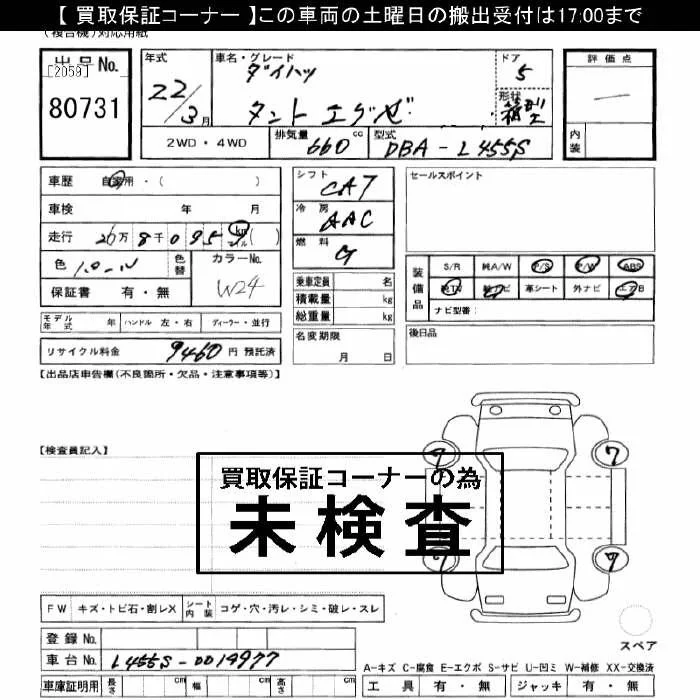 【 買取保証コーナー 】この車両の土曜日の搬出受付は17:00まで
(複合機)対応用紙
出品No.
[2059]
80731
年式
22/3月
車名・グレード
ダイハツ
タント エグゼ
ドア
5
形状
箱型
評価点
—
内装
2WD・4WD
排気量 660 cc
型式 DBA-L455S
車歴 自家用・( )
車検 年 月
走行 26万8千095 km マイル ( )
色 パール
色替
カラーNo.
W24
保証書 有・無
シフト CAT
冷房 AAC
燃料 G
乗車定員 名
積載量 kg
総重量 kg
セールスポイント
装備品
S/R 純A/W P/S P/W ABS
純TV 純ナビ 革シート 外ナビ エアB
ナビ型番:
モデル年式 年 ハンドル 左・右 ディーラー・並行
名変期限
月 日
後日品
リサイクル料金 9460 円 預託済
【出品店申告欄(不良箇所・欠品・注意事項等)】
【検査員記入】
7
7
7
7
買取保証コーナーの為
未検査
FW キズ・トビ石・割レX シート内装 コゲ・穴・汚レ・シミ・破レ・スレ
登録No.
車台No. L455S-0014977
スペア
A-キズ C-腐食 E-エクボ S-サビ U-凹ミ W-補修 XX-交換済
車庫証明用 長さ cm 幅 cm 高さ cm
工具 有・無 ジャッキ 有・無